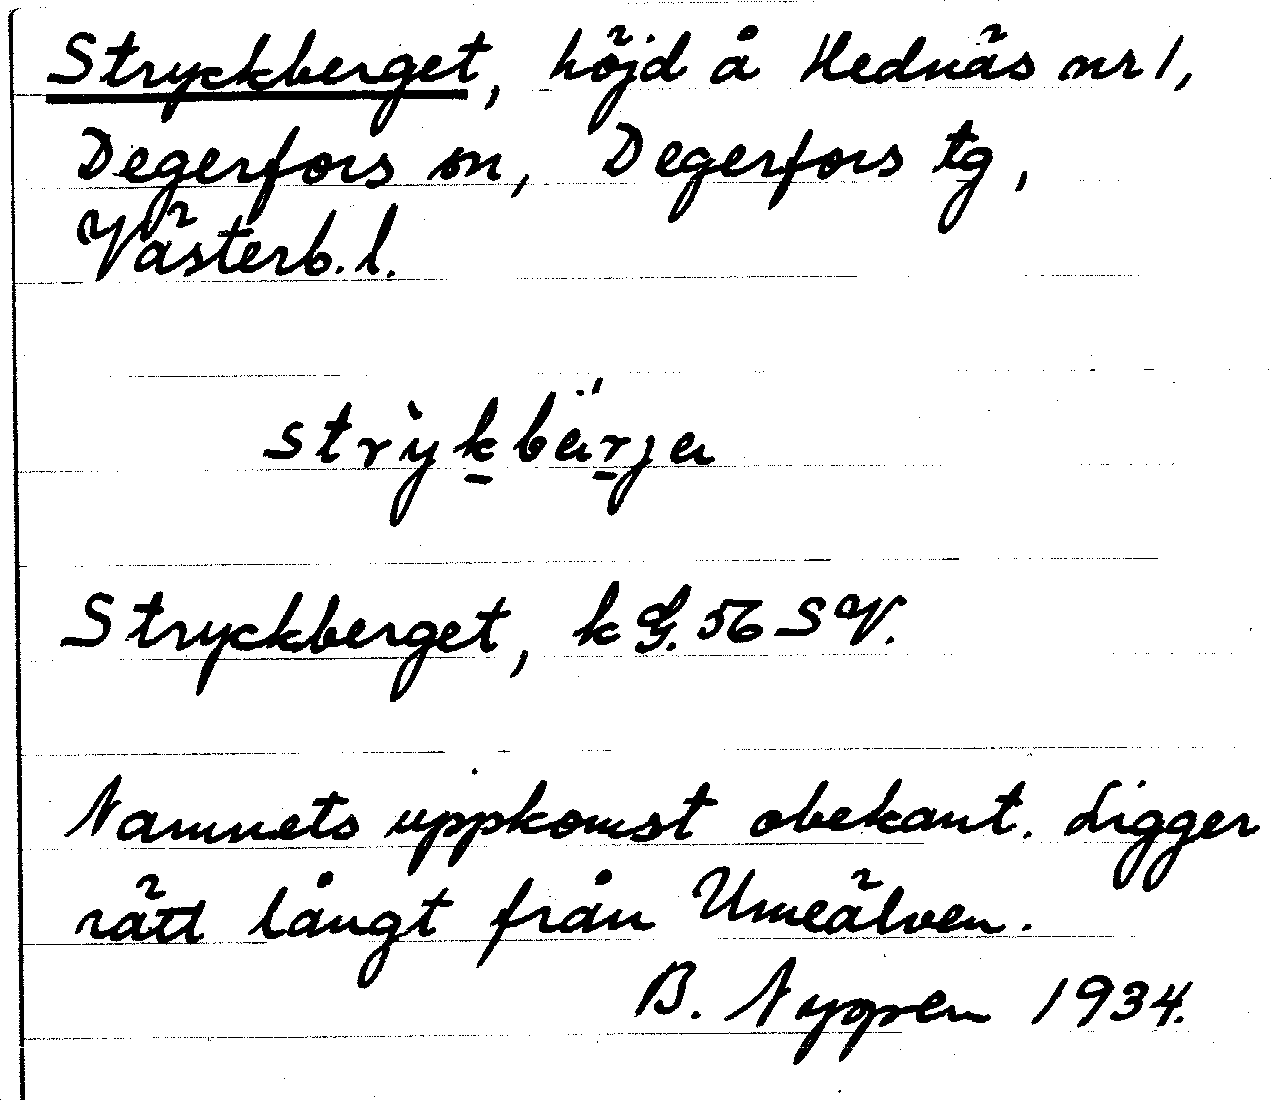 Stryckberget, höjd å Hednäs nr 1,
Degerfors sn, Degerfors tg,
Västerb. l.
strỳk̲bär̲ja
Stryckberget, k G. 56 SV.
Namnets uppkomst obekant. Ligger
rätt långt från Umeälven.
B. 1934.